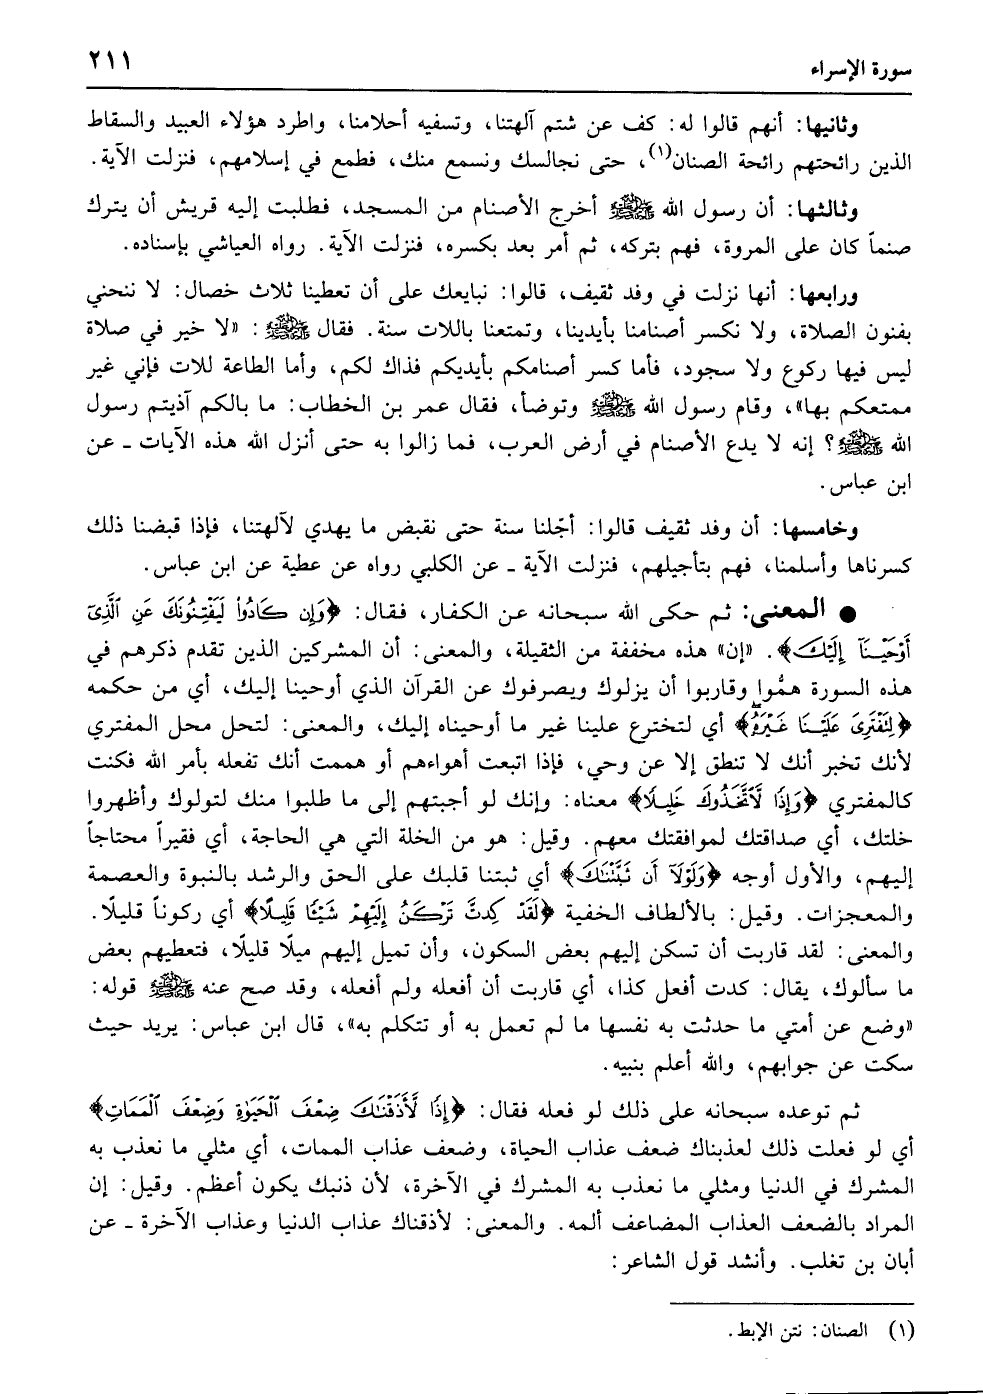 سورة الإسراء ٢١١
وثانيها: أنهم قالوا له: كف عن شتم آلهتنا، وتسفيه أحلامنا، واطرد هؤلاء العبيد والسقاط
الذين رائحتهم رائحة الصنان(١)، حتى نجالسك ونسمع منك، فطمع في إسلامهم، فنزلت الآية.
وثالثها: أن رسول الله ﷺ أخرج الأصنام من المسجد، فطلبت إليه قريش أن يترك
صنماً كان على المروة، فهم بتركه، ثم أمر بعد بكسره، فنزلت الآية. رواه العياشي بإسناده.
ورابعها: أنها نزلت في وفد ثقيف، قالوا: نبايعك على أن تعطينا ثلاث خصال: لا ننحني
بفنون الصلاة، ولا نكسر أصنامنا بأيدينا، وتمتعنا باللات سنة. فقال ﷺ: «لا خير في صلاة
ليس فيها ركوع ولا سجود، فأما كسر أصنامكم بأيديكم فذاك لكم، وأما الطاعة للات فإني غير
ممتعكم بها»، وقام رسول الله ﷺ وتوضأ، فقال عمر بن الخطاب: ما بالكم آذيتم رسول
الله ﷺ؟ إنه لا يدع الأصنام في أرض العرب، فما زالوا به حتى أنزل الله هذه الآيات ـ عن
ابن عباس.
وخامسها: أن وفد ثقيف قالوا: أجّلنا سنة حتى نقبض ما يهدي لآلهتنا، فإذا قبضنا ذلك
كسرناها وأسلمنا، فهم بتأجيلهم، فنزلت الآية ـ عن الكلبي رواه عن عطية عن ابن عباس.
● المعنى: ثم حكى الله سبحانه عن الكفار، فقال: ﴿وَإِن كَادُواْ لَيَفْتِنُونَكَ عَنِ ٱلَّذِىٓ
أَوْحَيْنَآ إِلَيْكَ﴾. «إن» هذه مخففة من الثقيلة، والمعنى: أن المشركين الذين تقدم ذكرهم في
هذه السورة همُّوا وقاربوا أن يزلوك ويصرفوك عن القرآن الذي أوحينا إليك، أي من حكمه
﴿لِتَفْتَرِىَ عَلَيْنَا غَيْرَهُۥ﴾ أي لتخترع علينا غير ما أوحيناه إليك، والمعنى: لتحل محل المفتري
لأنك تخبر أنك لا تنطق إلا عن وحي، فإذا اتبعت أهواءهم أو هممت أنك تفعله بأمر الله فكنت
كالمفتري ﴿وَإِذًا لَّٱتَّخَذُوكَ خَلِيلًا﴾ معناه: وإنك لو أجبتهم إلى ما طلبوا منك لتولوك وأظهروا
خلتك، أي صداقتك لموافقتك معهم. وقيل: هو من الخلة التي هي الحاجة، أي فقيراً محتاجاً
إليهم، والأول أوجه ﴿وَلَوْلَآ أَن ثَبَّتْنَٰكَ﴾ أي ثبتنا قلبك على الحق والرشد بالنبوة والعصمة
والمعجزات. وقيل: بالألطاف الخفية ﴿لَقَدْ كِدتَّ تَرْكَنُ إِلَيْهِمْ شَيْـًٔا قَلِيلًا﴾ أي ركوناً قليلًا.
والمعنى: لقد قاربت أن تسكن إليهم بعض السكون، وأن تميل إليهم ميلًا قليلًا، فتعطيهم بعض
ما سألوك، يقال: كدت أفعل كذا، أي قاربت أن أفعله ولم أفعله، وقد صح عنه ﷺ قوله:
«وضع عن أمتي ما حدثت به نفسها ما لم تعمل به أو تتكلم به»، قال ابن عباس: يريد حيث
سكت عن جوابهم، والله أعلم بنبيه.
ثم توعده سبحانه على ذلك لو فعله فقال: ﴿إِذًا لَّأَذَقْنَٰكَ ضِعْفَ ٱلْحَيَوٰةِ وَضِعْفَ ٱلْمَمَاتِ﴾
أي لو فعلت ذلك لعذبناك ضعف عذاب الحياة، وضعف عذاب الممات، أي مثلي ما نعذب به
المشرك في الدنيا ومثلي ما نعذب به المشرك في الآخرة، لأن ذنبك يكون أعظم. وقيل: إن
المراد بالضعف العذاب المضاعف ألمه. والمعنى: لأذقناك عذاب الدنيا وعذاب الآخرة ـ عن
أبان بن تغلب. وأنشد قول الشاعر:
(١) الصنان: نتن الإبط.